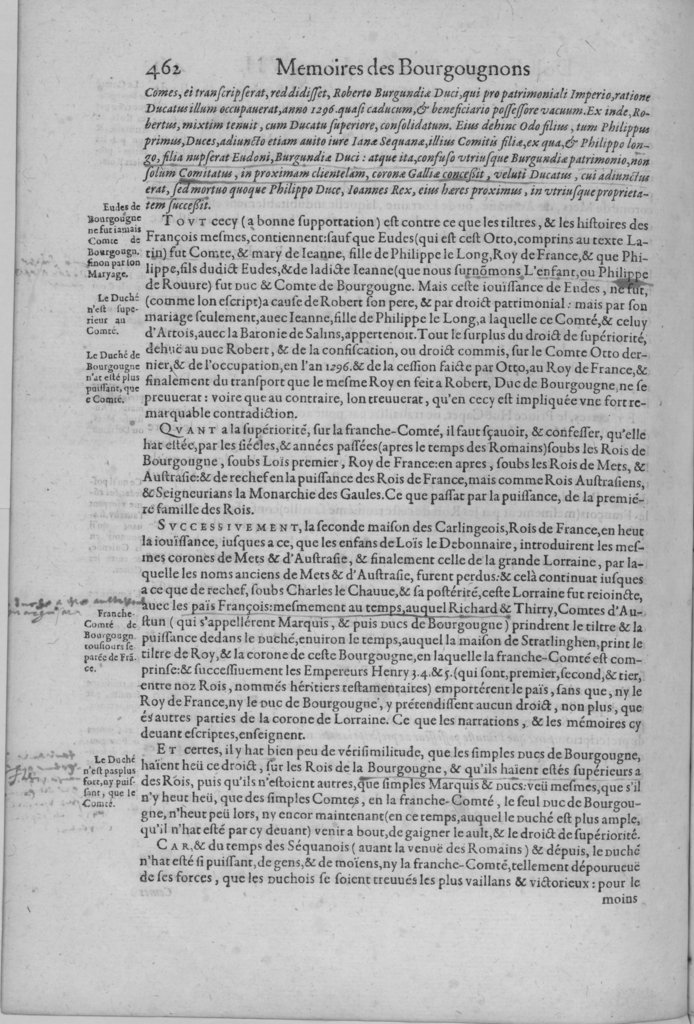 462 Memoires des Bourgougnons
Comes, ei transcripserat, reddidisset, Roberto Burgundiæ Duci, qui pro patrimoniali Imperio, ratione
Ducatus illum occupauerat, anno 1296. quasi caducum, & beneficiario possessore vacuum. Ex inde, Ro-
bertus, mixtim tenuit, cum Ducatu superiore, consolidatum. Eius dehinc Odo filius, tum Philippus
primus, Duces, adiuncto etiam auito iure Ianæ Sequanæ, illius Comitis filiæ, ex qua, & Philippo lon-
go, filia nupserat Eudoni, Burgundiæ Duci : atque ita, confuso vtriusque Burgundiæ patrimonio, non
solùm Comitatus, in proximam clientelam, coronæ Galliæ concessit, veluti Ducatus, cui adiunctus
erat, sed mortuo quoque Philippo Duce, Ioannes Rex, eius hæres proximus, in vtriusque proprieta-
tem successit.
Eudes de
Bourgougne
ne fut iamais
Comte de
Bourgougn.
sinon par son
Maryage.
TOVT cecy (a bonne supportation) est contre ce que les tiltres, & les histoires des
François mesmes, contiennent: sauf que Eudes (qui est cest Otto, comprins au texte La-
tin) fut Comte, & mary de Ieanne, fille de Philippe le Long, Roy de France, & que Phi-
lippe, fils dudict Eudes, & de ladicte Ieanne (que nous surnõmons L'enfant, ou Philippe
de Rouure) fut Duc & Comte de Bourgougne. Mais ceste iouissance de Eudes, ne fut,
(comme lon escript) a cause de Robert son pere, & par droict patrimonial : mais par son
mariage seulement, auec Ieanne, fille de Philippe le Long, a laquelle ce Comté, & celuy
d'Artois, auec la Baronie de Salins, appertenoit. Tout le surplus du droict de supériorité,
dehuë au Duc Robert, & de la confiscation, ou droict commis, sur le Comte Otto der-
nier, & de l'occupation, en l'an 1296. & de la cession faicte par Otto, au Roy de France, &
finalement du transport que le mesme Roy en feit a Robert, Duc de Bourgougne, ne se
preuuerat : voire que au contraire, lon treuuerat, qu'en cecy est impliquée vne fort re-
marquable contradiction.
Le Duché
n'est supe-
rieur au
Comté.
Le Duché de
Bourgougne
n'at esté plus
puissant, que
e Comté.
QVANT a la supériorité, sur la franche-Comté, il faut sçauoir, & confesser, qu'elle
hat estée, par les siécles, & années passées (apres le temps des Romains) soubs les Rois de
Bourgougne, soubs Loïs premier, Roy de France: en apres, soubs les Rois de Mets, &
Austrasie: & de rechef en la puissance des Rois de France, mais comme Rois Austrasiens,
& Seigneurians la Monarchie des Gaules. Ce que passat par la puissance, de la premié-
re famille des Rois.
SVCCESSIVEMENT, la seconde maison des Carlingeois, Rois de France, en heut
la iouïssance, iusques a ce, que les enfans de Loïs le Debonnaire, introduirent les mes-
mes corones de Mets & d'Austrasie, & finalement celle de la grande Lorraine, par la-
quelle les noms anciens de Mets & d'Austrasie, furent perdus: & celà continuat iusques
a ce que de rechef, soubs Charles le Chauue, & sa postérité, ceste Lorraine fut reioincte,
auec les païs François: mesmement au temps, auquel Richard & Thirry, Comtes d'Au-
stun (qui s'appellérent Marquis, & puis Ducs de Bourgougne) prindrent le tiltre & la
puissance dedans le Duché, enuiron le temps, auquel la maison de Stratlinghen, print le
tiltre de Roy, & la corone de ceste Bourgougne, en laquelle la franche-Comté est com-
prinse: & successiuement les Empereurs Henry 3. 4. & 5. (qui sont, premier, second, & tier,
entre noz Rois, nommés héritiers testamentaires) emportérent le païs, sans que, ny le
Roy de France, ny le Duc de Bourgougne, y prétendissent aucun droict, non plus, que
és autres parties de la corone de Lorraine. Ce que les narrations, & les mémoires cy
deuant escriptes, enseignent.
Franche-
Comté de
Bourgougn.
tousiours se
parée de Frã-
ce.
ET certes, il y hat bien peu de vérisimilitude, que les simples Ducs de Bourgougne,
haïent heü ce droict, sur les Rois de la Bourgougne, & qu'ils haïent estés supérieurs a
des Rois, puis qu'ils n'estoient autres, que simples Marquis & Ducs: veü mesmes, que s'il
n'y heut heü, que des simples Comtes, en la franche-Comté, le seul Duc de Bourgou-
gne, n'heut peü lors, ny encor maintenant (en ce temps, auquel le Duché est plus ample,
qu'il n'hat esté par cy deuant) venir a bout, de gaigner le ault, & le droict de supériorité.
Le Duché
n'est pas plus
fort, ny puis-
sant, que le
Comté.
CAR, & du temps des Séquanois (auant la venuë des Romains) & dépuis, le Duché
n'hat esté si puissant, de gens, & de moïens, ny la franche-Comté, tellement dépourueuë
de ses forces, que les Duchois se soient treuués les plus vaillans & victorieux : pour le
moins